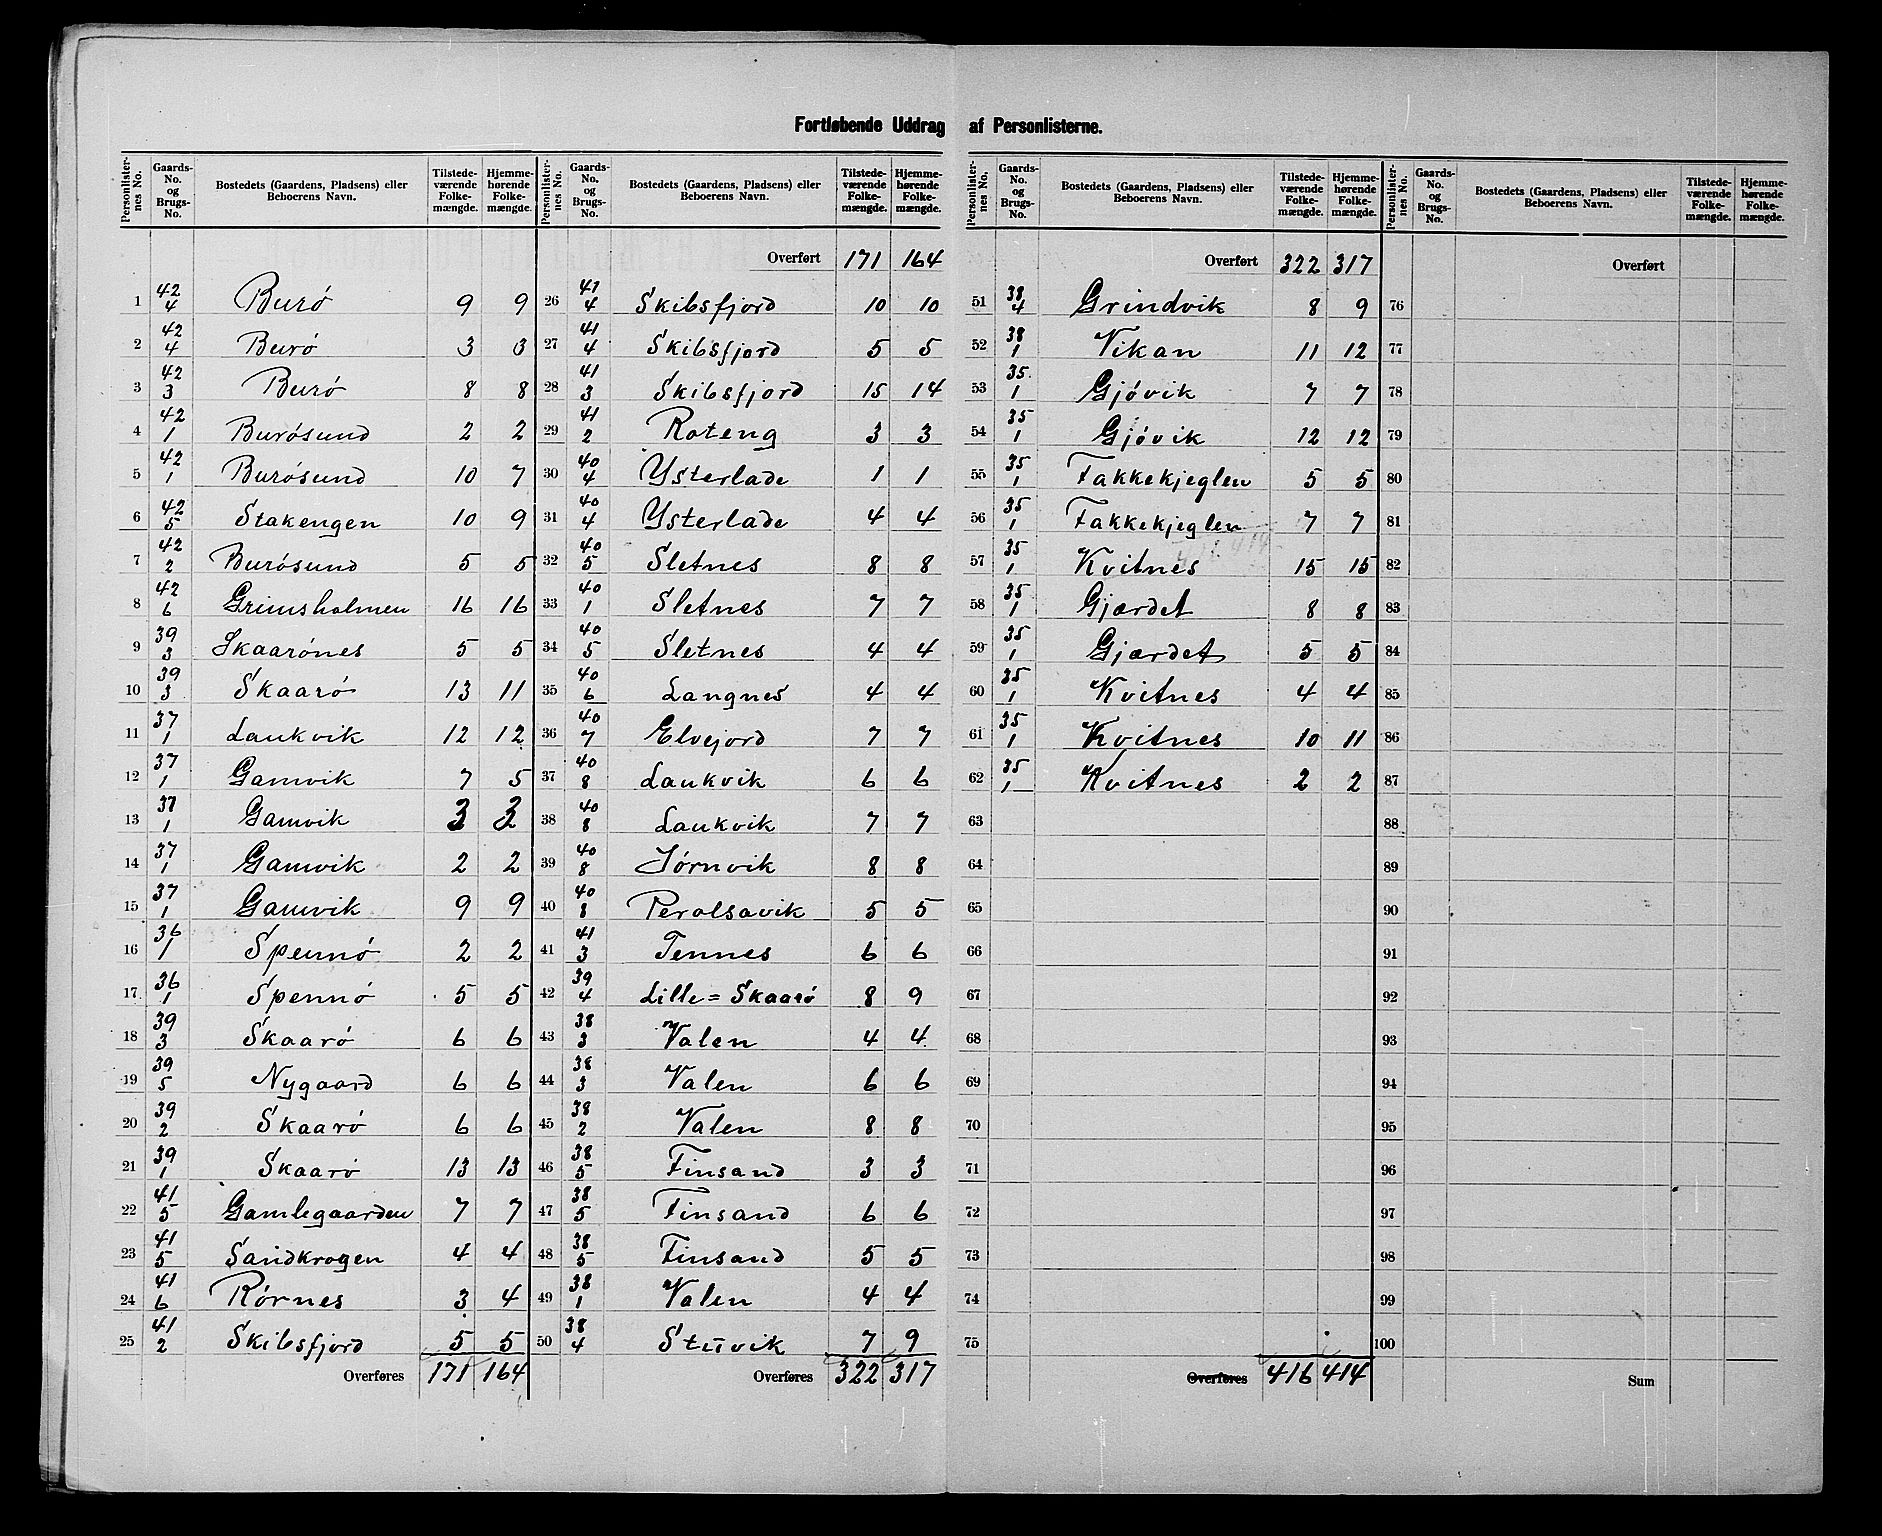 Fortløbende Uddrag af Personlisterne.
Personlister-nes No. | Gaards-No. og Brugs-No. | Bostedets (Gaardens, Pladsens) eller Beboerens Navn. | Tilstede-værende Folke-mængde. | Hjemme-hørende Folke-mængde.
1 | 42/4 | Burø | 9 | 9
2 | 42/4 | Burø | 3 | 3
3 | 42/3 | Burø | 8 | 8
4 | 42/1 | Burøsund | 2 | 2
5 | 42/1 | Burøsund | 10 | 7
6 | 42/5 | Stakengen | 10 | 9
7 | 42/2 | Burøsund | 5 | 5
8 | 42/6 | Grimsholmen | 16 | 16
9 | 39/3 | Skaarønes | 5 | 5
10 | 39/3 | Skaarø | 13 | 11
11 | 37/1 | Laukvik | 12 | 12
12 | 37/1 | Gamvik | 7 | 5
13 | 37/1 | Gamvik | 3 | 3
14 | 37/1 | Gamvik | 2 | 2
15 | 37/1 | Gamvik | 9 | 9
16 | 36/1 | Spennø | 2 | 2
17 | 36/1 | Spennø | 5 | 5
18 | 39/3 | Skaarø | 6 | 6
19 | 39/5 | Nygaard | 6 | 6
20 | 39/2 | Skaarø | 6 | 6
21 | 39/1 | Skaarø | 13 | 13
22 | 41/5 | Gamlegaarden | 7 | 7
23 | 41/5 | Sandkrogen | 4 | 4
24 | 41/6 | Rørnes | 3 | 4
25 | 41/2 | Skibsfjord | 5 | 5
Overføres | 171 | 164
Personlister-nes No. | Gaards-No. og Brugs-No. | Bostedets (Gaardens, Pladsens) eller Beboerens Navn. | Tilstede-værende Folke-mængde. | Hjemme-hørende Folke-mængde.
Overført | 171 | 164
26 | 41/4 | Skibsfjord | 10 | 10
27 | 41/4 | Skibsfjord | 5 | 5
28 | 41/3 | Skibsfjord | 15 | 14
29 | 41/2 | Roteng | 3 | 3
30 | 40/4 | Ysterlade | 1 | 1
31 | 40/4 | Ysterlade | 4 | 4
32 | 40/5 | Sletnes | 8 | 8
33 | 40/1 | Sletnes | 7 | 7
34 | 40/5 | Sletnes | 4 | 4
35 | 40/6 | Langnes | 4 | 4
36 | 40/7 | Elvejord | 7 | 7
37 | 40/8 | Laukvik | 6 | 6
38 | 40/8 | Laukvik | 7 | 7
39 | 40/8 | Jørnvik | 8 | 8
40 | 40/8 | Perolsavik | 5 | 5
41 | 41/3 | Tennes | 6 | 6
42 | 39/4 | Lille=Skaarø | 8 | 9
43 | 38/3 | Valen | 4 | 4
44 | 38/3 | Valen | 6 | 6
45 | 38/2 | Valen | 8 | 8
46 | 38/5 | Finsand | 3 | 3
47 | 38/5 | Finsand | 6 | 6
48 | 38/5 | Finsand | 5 | 5
49 | 38/1 | Valen | 4 | 4
50 | 38/4 | Stuvik | 7 | 9
Overføres | 322 | 317
Personlister-nes No. | Gaards-No. og Brugs-No. | Bostedets (Gaardens, Pladsens) eller Beboerens Navn. | Tilstede-værende Folke-mængde. | Hjemme-hørende Folke-mængde.
Overført | 322 | 317
51 | 38/4 | Grindvik | 8 | 9
52 | 38/1 | Vikan | 11 | 12
53 | 35/1 | Gjøvik | 7 | 7
54 | 35/1 | Gjøvik | 12 | 12
55 | 35/1 | Fakkekjeglen | 5 | 5
56 | 35/1 | Fakkekjeglen | 7 | 7
57 | 35/1 | Kvitnes | 15 | 15
58 | 35/1 | Gjærdet | 8 | 8
59 | 35/1 | Gjærdet | 5 | 5
60 | 35/1 | Kvitnes | 4 | 4
61 | 35/1 | Kvitnes | 10 | 11
62 | 35/1 | Kvitnes | 2 | 2
63
64
65
66
67
68
69
70
71
72
73
74
75
Overføres | 416 | 414
Personlister-nes No. | Gaards-No. og Brugs-No. | Bostedets (Gaardens, Pladsens) eller Beboerens Navn. | Tilstede-værende Folke-mængde. | Hjemme-hørende Folke-mængde.
Overført
76
77
78
79
80
81
82
83
84
85
86
87
88
89
90
91
92
93
94
95
96
97
98
99
100
Sum